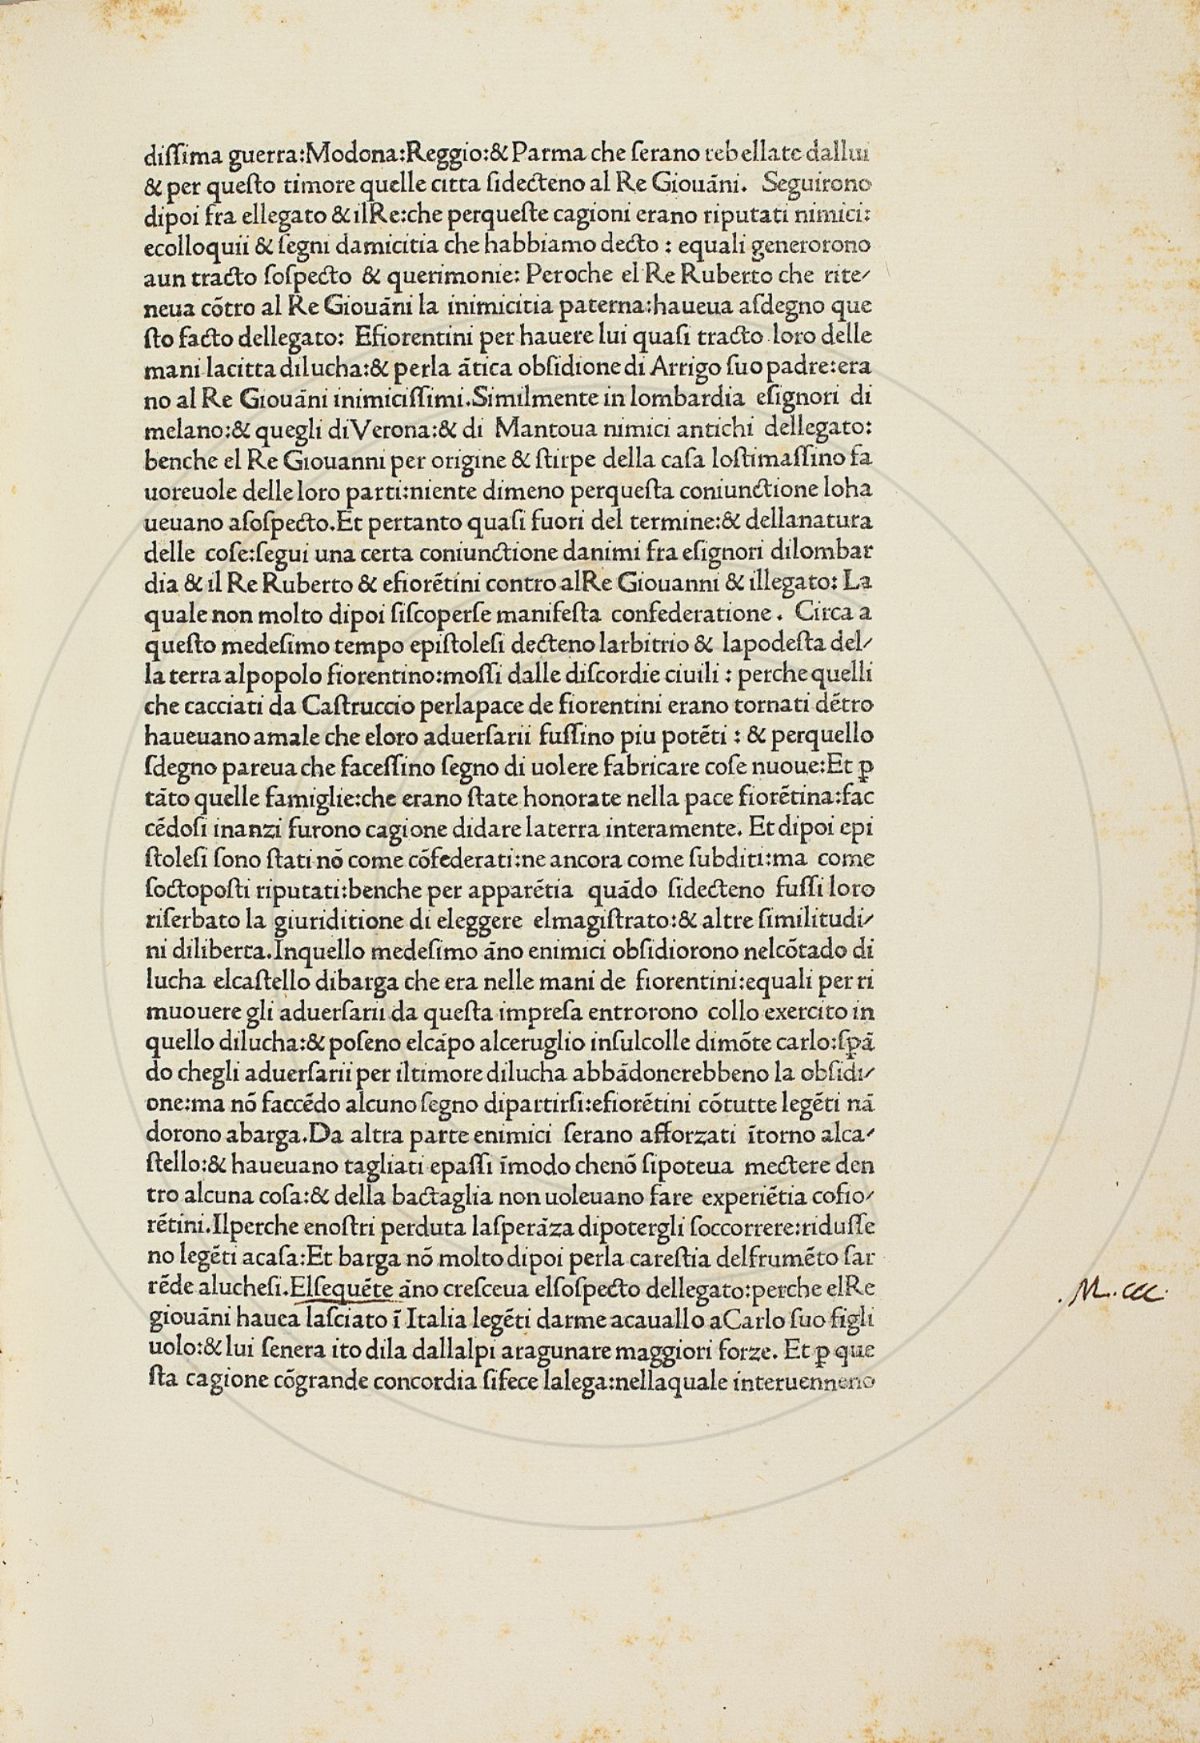 diſſima guerra:Modona:Reggio:& Parma che ſerano rebellate dallui
& per queſto timore quelle citta ſidecteno al Re Giouāni. Seguirono
dipoi fra ellegato & ilRe:che perqueſte cagioni erano riputati nimici:
ecolloquii & ſegni damicitia che habbiamo decto : equali generorono
aun tracto ſoſpecto & querimonie: Peroche el Re Ruberto che rite/
neua cōtro al Re Giouāni la inimicitia paterna:haueua aſdegno que
ſto facto dellegato: Efiorentini per hauere lui quaſi tracto loro delle
mani lacitta dilucha:& perla ātica obſidione di Arrigo ſuo padre:era
no al Re Giouāni inimiciſſimi.Similmente in lombardia eſignori di
melano:& quegli diVerona:& di Mantoua nimici antichi dellegato:
benche el Re Giouanni per origine & ſtirpe della caſa loſtimaſſino fa
uoreuole delle loro parti:niente dimeno perqueſta coniunctione loha
ueuano aſoſpecto.Et pertanto quaſi fuori del termine:& dellanatura
delle coſe:ſegui una certa coniunctione danimi fra eſignori dilombar
dia & il Re Ruberto & efiorētini contro alRe Giouanni & illegato: La
quale non molto dipoi ſiſcoperſe manifeſta confederatione. Circa a
queſto medeſimo tempo epiſtoleſi decteno larbitrio & lapodeſta del/
la terra alpopolo fiorentino:moſſi dalle diſcordie ciuili : perche quelli
che cacciati da Caſtruccio perlapace de fiorentini erano tornati dētro
haueuano amale che eloro aduerſarii fuſſino piu potēti : & perquello
ſdegno pareua che faceſſino ſegno di uolere fabricare coſe nuoue:Et ꝑ
tāto quelle famiglie:che erano ſtate honorate nella pace fiorētina:fac
cēdoſi inanzi furono cagione didare laterra interamente. Et dipoi epi
ſtoleſi ſono ſtati nō come cōfederati:ne ancora come ſubditi:ma come
ſoctopoſti riputati:benche per apparētia quādo ſidecteno fuſſi loro
riſerbato la giuriditione di eleggere elmagiſtrato:& altre ſimilitudi/
ni diliberta.Inquello medeſimo āno enimici obſidiorono nelcōtado di
lucha elcaſtello dibarga che era nelle mani de fiorentini:equali per ri
muouere gli aduerſarii da queſta impreſa entrorono collo exercito in
quello dilucha:& poſeno elcāpo alceruglio inſulcolle dimōte carlo:ſꝑā
do chegli aduerſarii per iltimore dilucha abbādonerebbeno la obſidi/
one:ma nō faccēdo alcuno ſegno dipartirſi:efiorētini cōtutte legēti nā
dorono abarga.Da altra parte enimici ſerano afforzati ītorno alca/
ſtello:& haueuano tagliati epaſſi īmodo chenō ſipoteua mectere den
tro alcuna coſa:& della bactaglia non uoleuano fare experiētia cofio/
rētini.Ilperche enoſtri perduta laſperāza dipotergli ſoccorrere:riduſſe
no legēti acaſa:Et barga nō molto dipoi perla careſtia delfrumēto ſar
rēde alucheſi.Elſequēte āno creſceua elſoſpecto dellegato:perche elRe
giouāni hauea laſciato ī Italia legēti darme acauallo aCarlo ſuo figli
uolo:& lui ſenera ito dila dallalpi aragunare maggiori forze. Et ꝑ que
ſta cagione cōgrande concordia ſifece lalega:nellaquale interuenneno
.M.ccc.